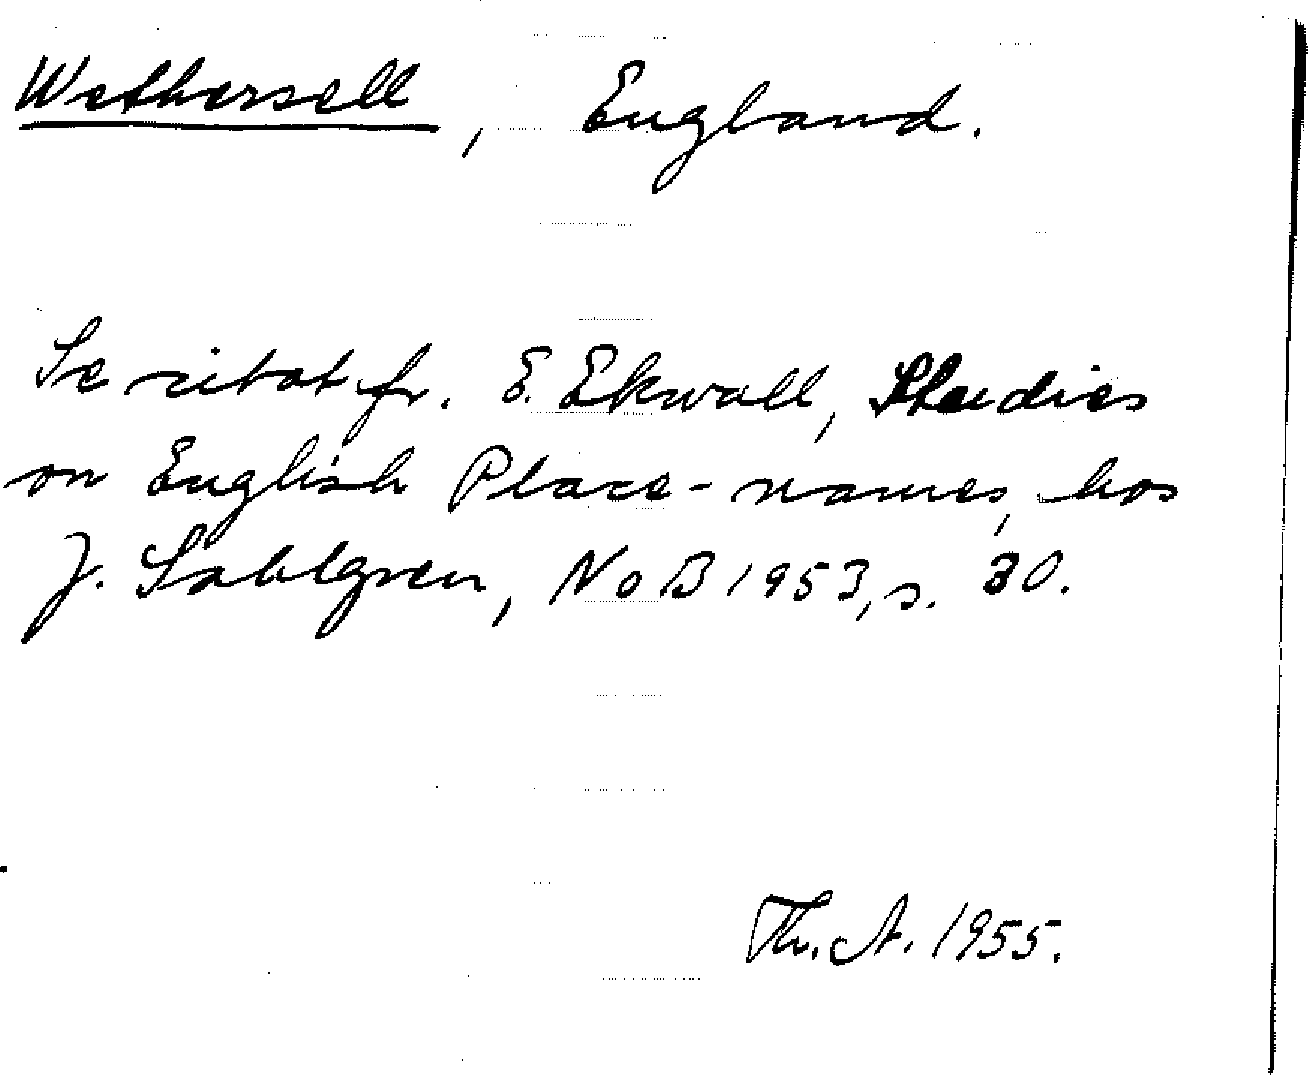 Wethersell, England.
Se citat fr. E. Ekwall, Studies
on English Place-names, hos
J. Sahlgren, NoB 1953, s. 30.
Th. A. 1955.